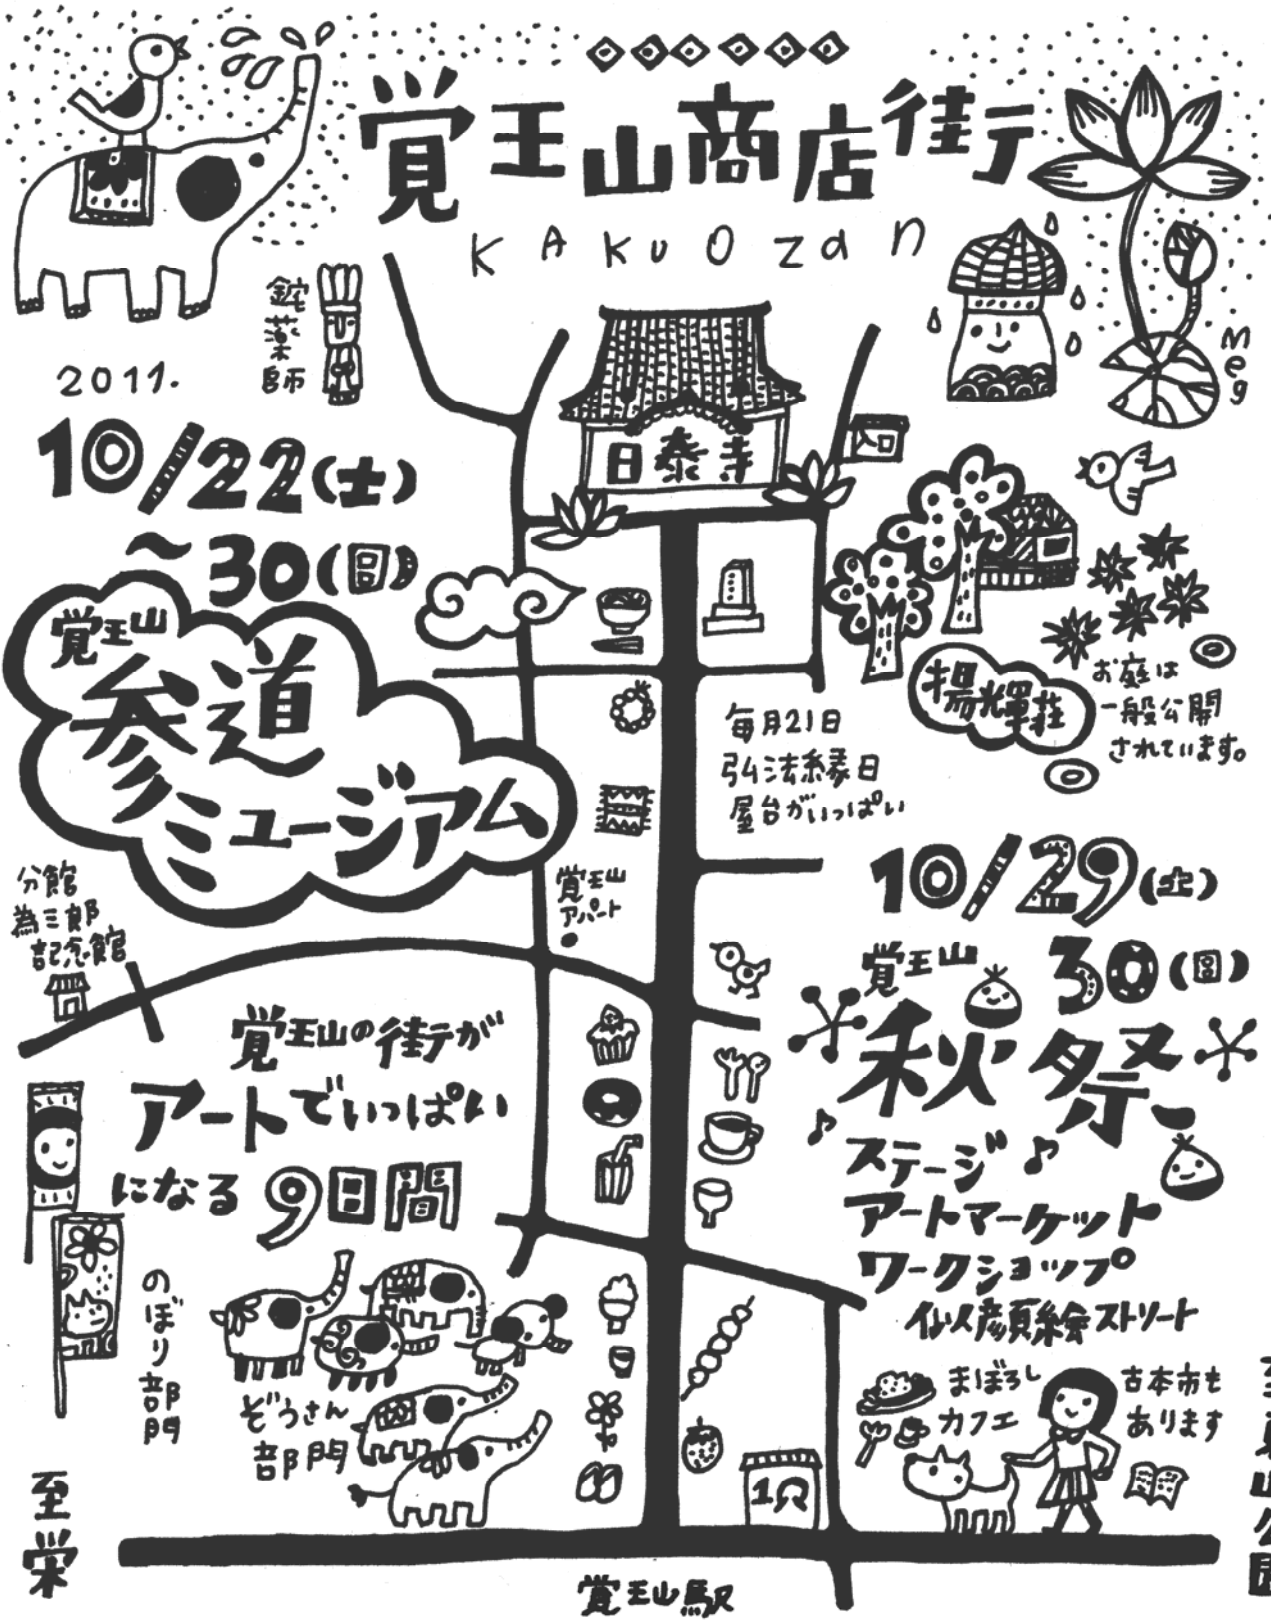 覚王山商店街
KAKUOZan
meg
鉈薬師
2011.
10/22(土)
〜30(日)
覚王山
参道
ミュージアム
日泰寺
入口
揚輝荘
お庭は
一般公開
されています。
毎月21日
弘法縁日
屋台がいっぱい
分館
為三郎
記念館
覚王山
アパート
10/29(土)
30(日)
覚王山
秋祭
ステージ
アートマーケット
ワークショップ
似顔絵ストリート
覚王山の街が
アートでいっぱい
になる9日間
のぼり部門
ぞうさん
部門
まぼろし
カフェ
古本市も
あります
至栄
覚王山駅